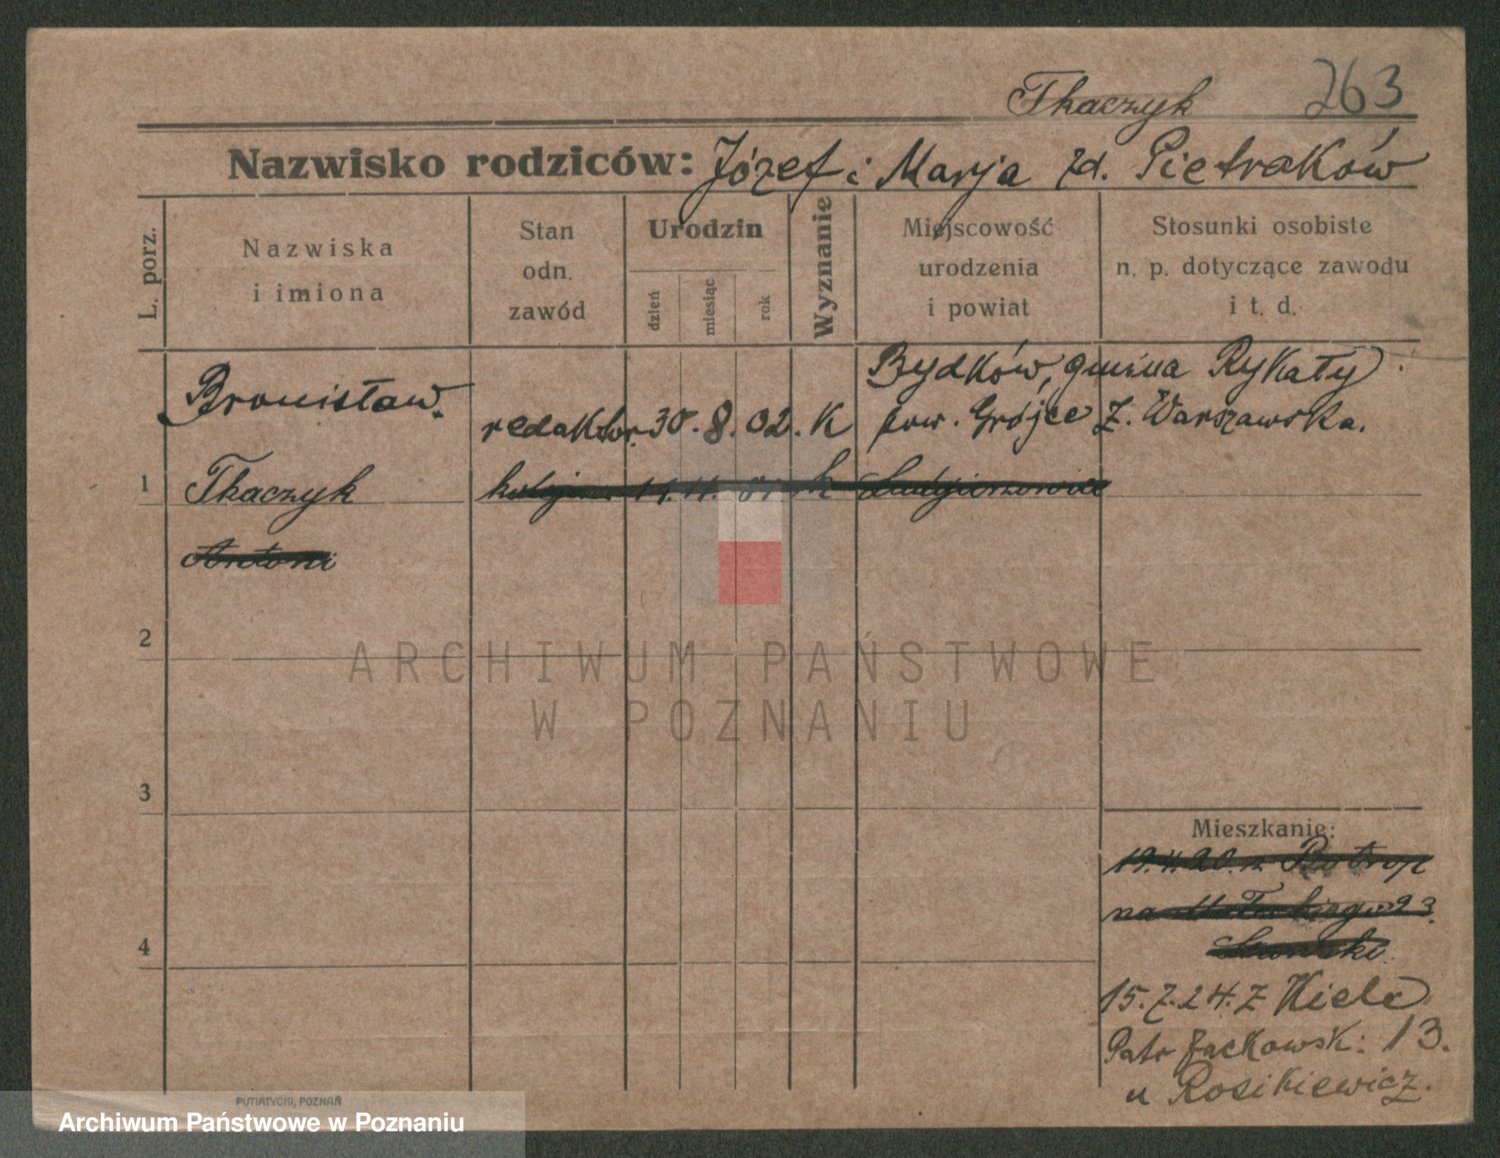 Tkaczyk 263
Nazwisko rodziców: Józef i Marja zd. Pietraków
L. porz.
Nazwiska
i imiona
Stan
odn.
zawód
Urodzin
dzień
miesiąc
rok
Wyznanie
Miejscowość
urodzenia
i powiat
Stosunki osobiste
n. p. dotyczące zawodu
i t. d.
Bronisław. redaktor. 30. 8. 02. K
Bydków, gmina Rykały
pow. Grójce Z. Warszawska.
1 Tkaczyk 11. 11. 01. k
Antoni
2
ARCHIWUM PAŃSTWOWE
W POZNANIU
3
Mieszkanie:
19.4.20. z Piotrop
na 23.
4
15.7.24. z Kielc
Patr Jackowsk: 13.
u Rosikiewicz.
PUTIATYCKI, POZNAŃ
Archiwum Państwowe w Poznaniu